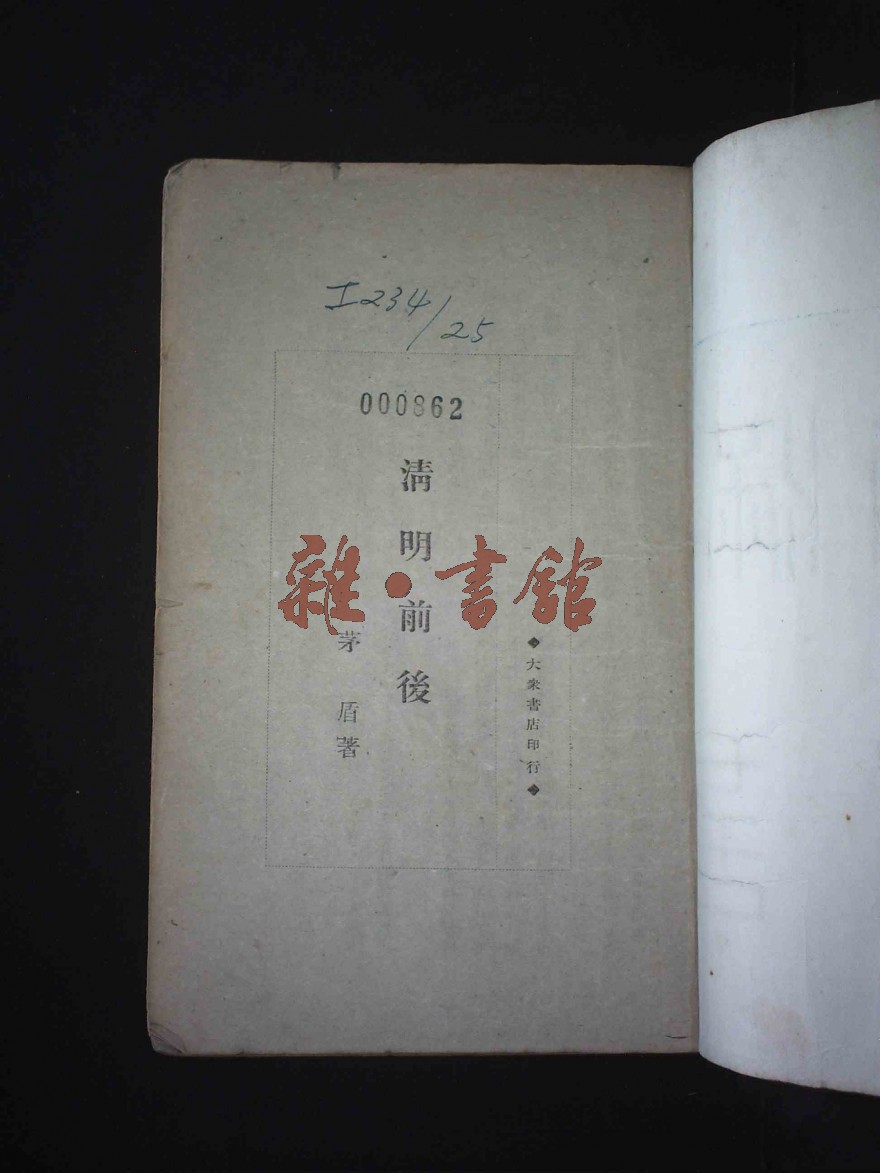 I234/25
000862
清明前後
茅盾著
◆大衆書店印行◆
雜·書館